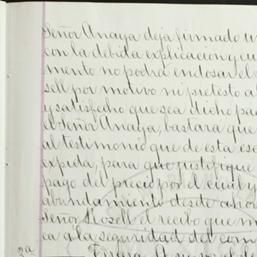 Señor Anaya deja firmado un
con la debida explicacion y cu
mento no podrá endosar el
sell por motivo ni pretesto al
y satisfecho que sea dicho pag
el Señor Anaya, bastará que
al testimonio que de esta es
expida, para que justifique
pago del precio por el cual y
abundamiento desde ahor
Señor Rosell el recibo que m
ca a la seguridad del com
2ª